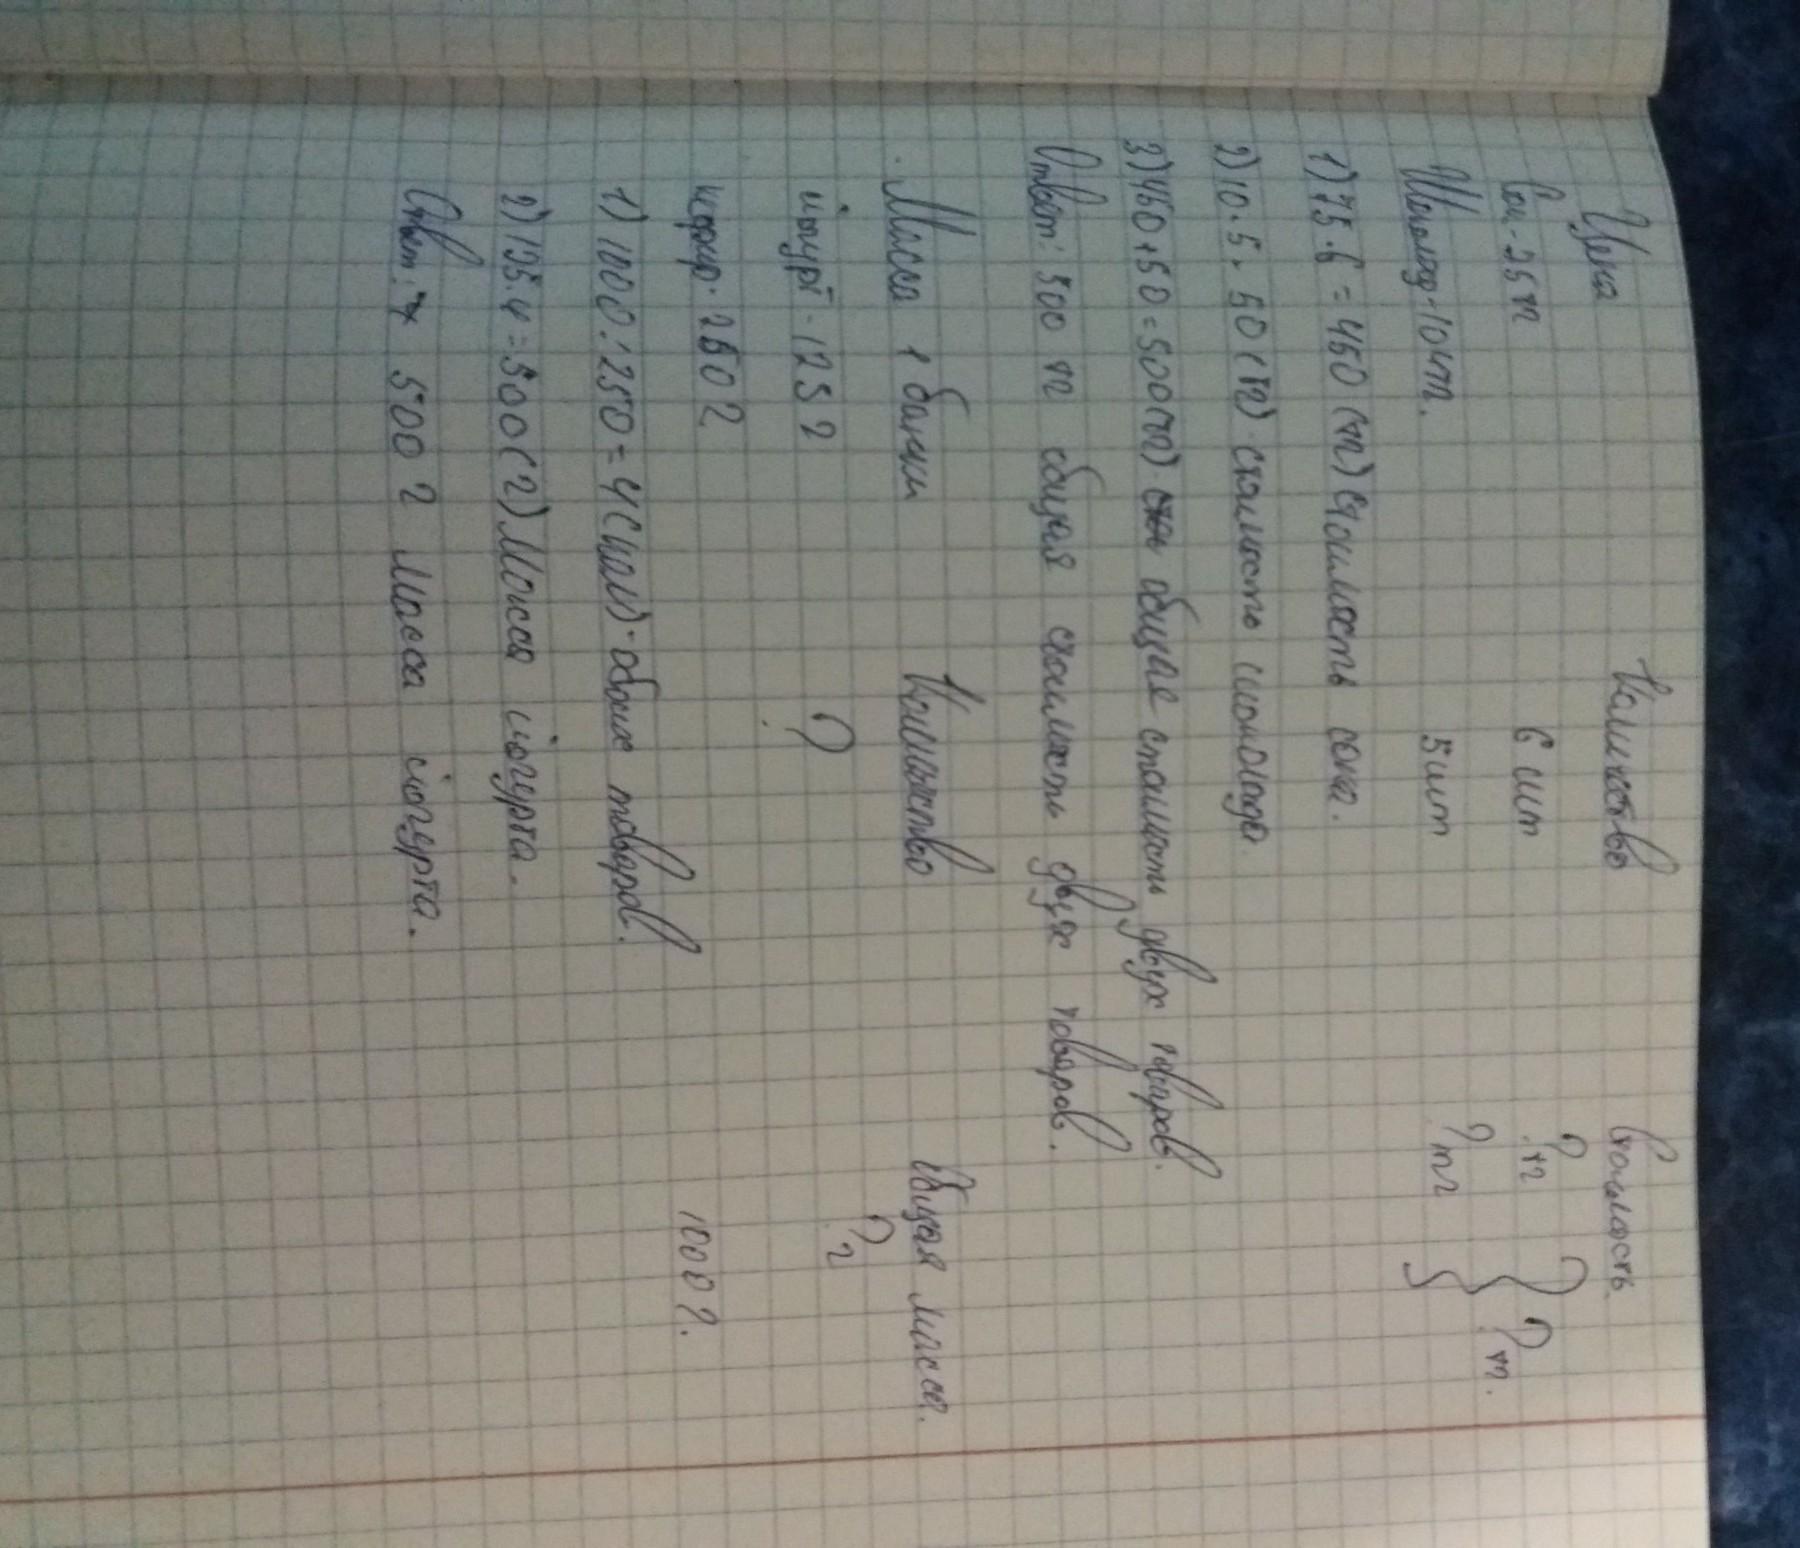 Цена Количество Стоимость.
Сок - 75 т 6 шт ? т } ? т.
Шоколад - 10 т. 5 шт ? т
1) 75 · 6 = 450 (тг) стоимость сока.
2) 10 · 5 = 50 (тг) стоимость шоколада.
3) 450 + 50 = 500 (тг) общая стоимость двух товаров.
Ответ: 500 тг общая стоимость двух товаров.
Масса 1 банки Количество Общая масса.
йогурт - 125 г ? ? г
кефир - 250 г 1000 г.
1) 1000 : 250 = 4 обоих товаров.
2) 125 · 4 = 500 (г) Масса йогурта.
Ответ: 500 г Масса йогурта.